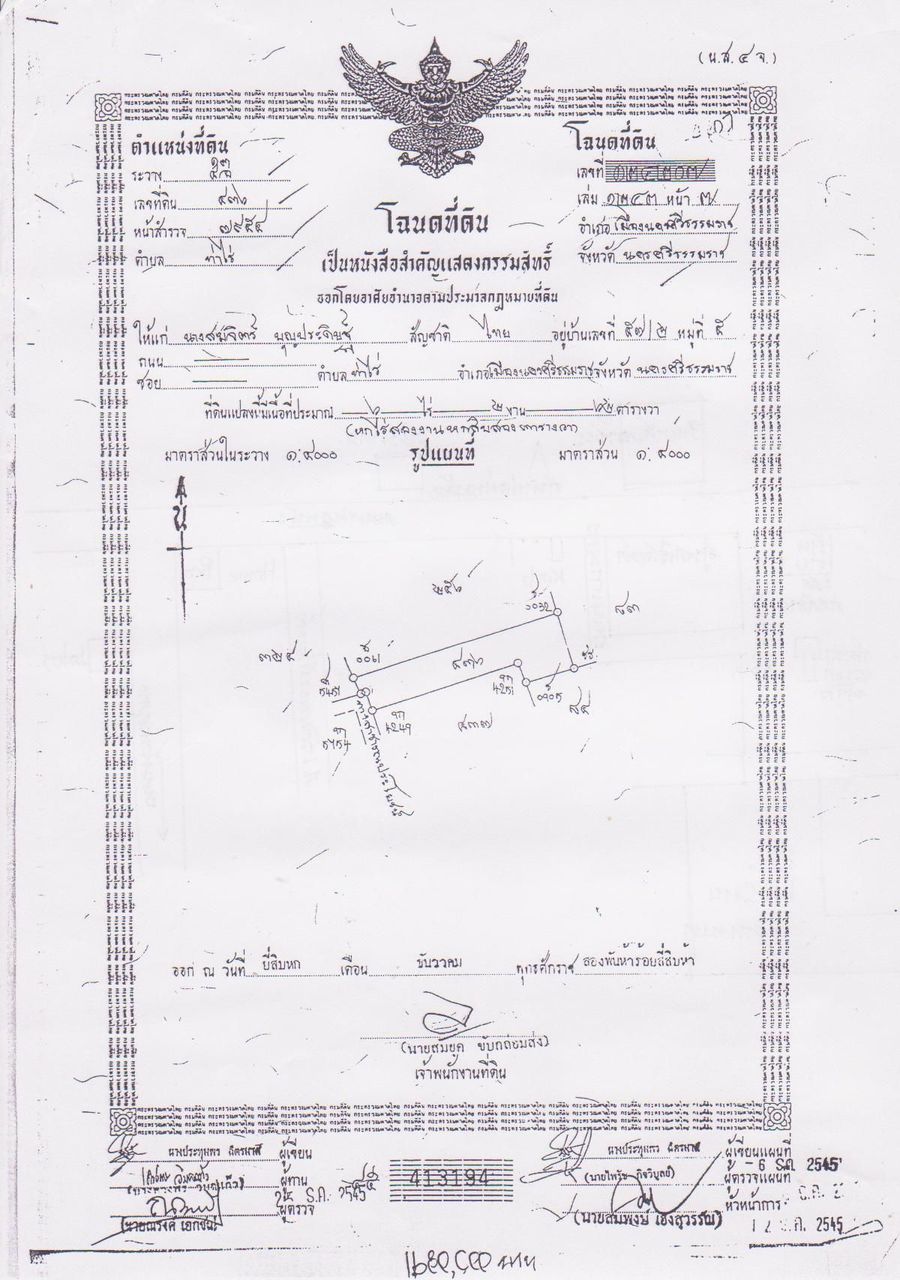 (น.ส.๔ จ.)
ตำแหน่งที่ดิน
ระวาง
เลขที่ดิน ๙๓๖
หน้าสำรวจ ๗๙๕๕
ตำบล ท่าไร่
โฉนดที่ดิน
เลขที่
เล่ม ๑๒๔๓ หน้า ๗
อำเภอ เมืองนครศรีธรรมราช
จังหวัด นครศรีธรรมราช
โฉนดที่ดิน
เป็นหนังสือสำคัญแสดงกรรมสิทธิ์
ออกโดยอาศัยอำนาจตามประมวลกฎหมายที่ดิน
ให้แก่ นางสมจิตร์ บุญประดิษฐ์ สัญชาติ ไทย อยู่บ้านเลขที่ ๕๗/๒ หมู่ที่ ๕
ถนน
ซอย ตำบล ท่าไร่ อำเภอ เมืองนครศรีธรรมราช จังหวัด นครศรีธรรมราช
ที่ดินแปลงนี้มีเนื้อที่ประมาณ ๖ ไร่ ๒ งาน ๖๒ ตารางวา
(หกไร่สองงานหกสิบสองตารางวา)
มาตราส่วนในระวาง ๑:๔๐๐๐ รูปแผนที่ มาตราส่วน ๑:๔๐๐๐
น
๒๕๖
๓๒๕
๙๓๖
๘๓
๘๔
๙๓๗
4251
4249
ทางสาธารณประโยชน์
ออก ณ วันที่ ยี่สิบหก เดือน ธันวาคม พุทธศักราช สองพันห้าร้อยสี่สิบห้า
เจ้าพนักงานที่ดิน
ผู้เขียน
ผู้ทาน
ผู้ตรวจ
ธ.ค. 2545
413194
ผู้เขียนแผนที่
- 6 ธ.ค. 2545
ผู้ตรวจแผนที่
หัวหน้าการ
(นายสมพงษ์ เฮงสุวรรณ)
12 ธ.ค. 2545